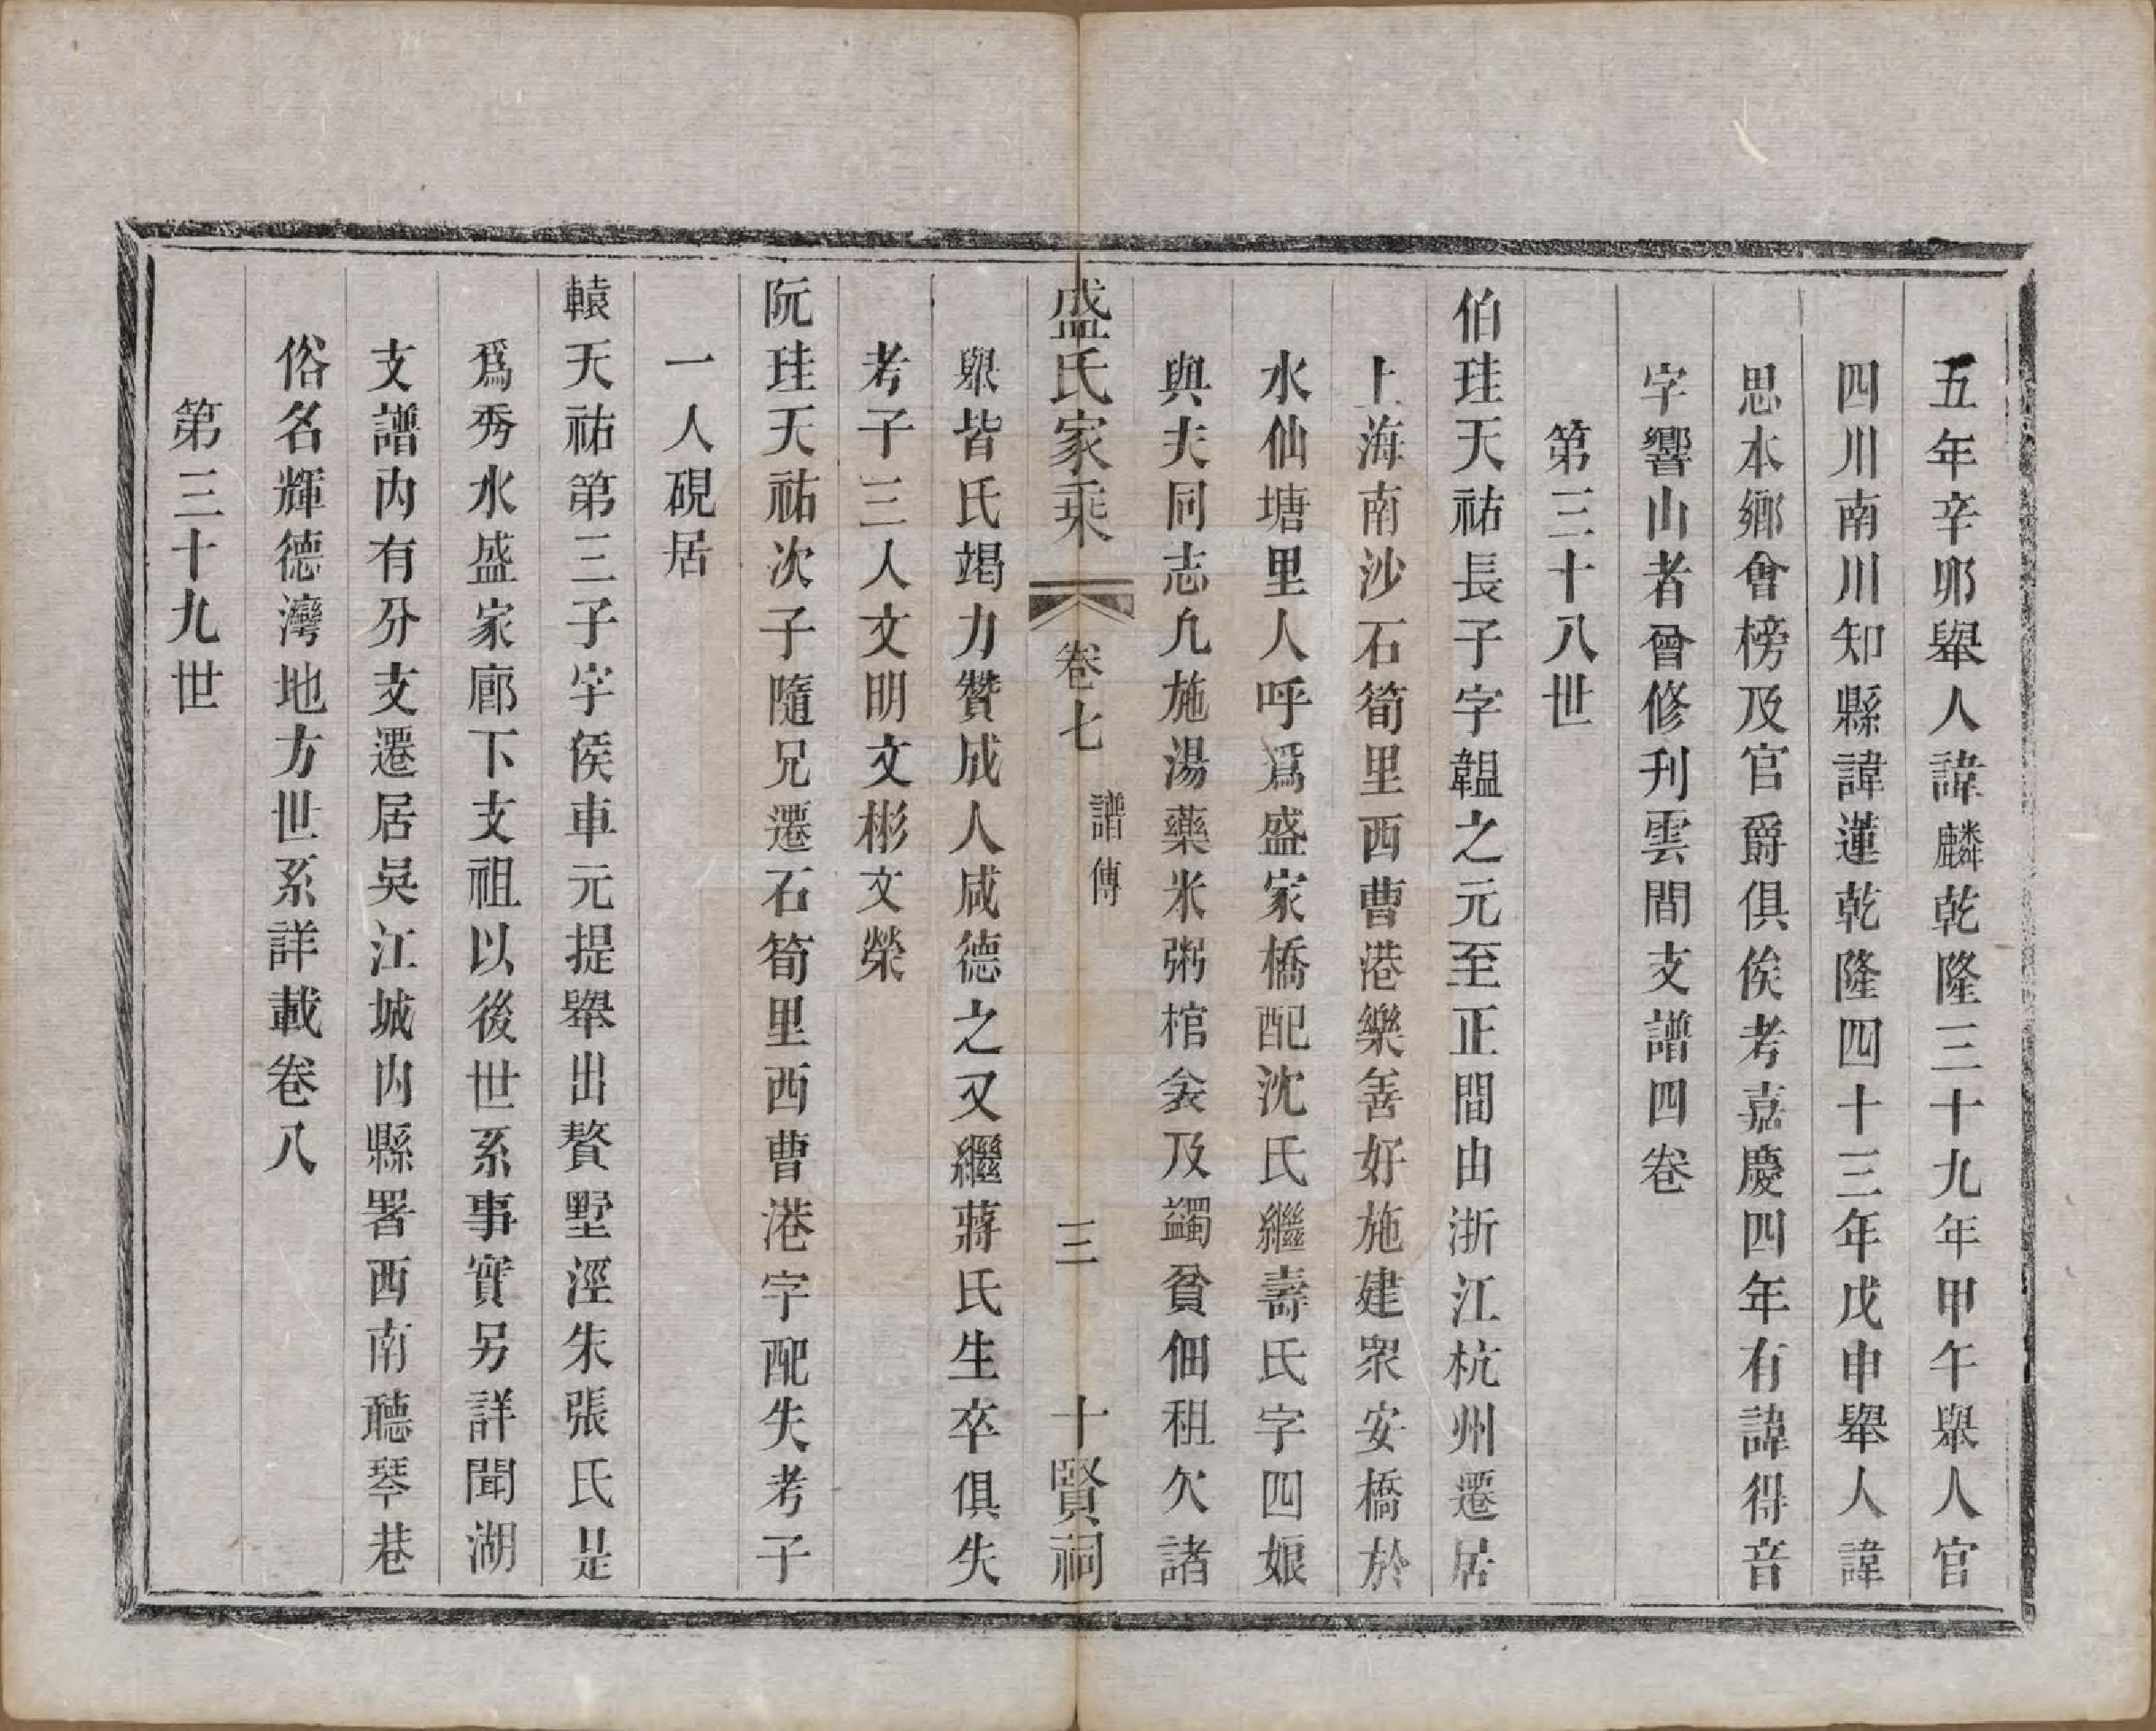 五年辛卯舉人諱麟乾隆三十九年甲午舉人官
四川南川知縣諱蓮乾隆四十三年戊申舉人諱
思本鄉會榜及官爵俱俟考嘉慶四年有諱得音
字響山者曾修刋雲間支譜四卷
第三十八世
伯珪天祐長子字韞之元至正間由浙江杭州遷居
上海南沙石筍里西曹港樂善好施建眾安橋於
水仙塘里人呼爲盛家橋配沈氏繼壽氏字四娘
與夫同志凢施湯藥米粥棺衾及蠲貧佃租欠諸
盛氏家乘
卷七
譜傳
三
十賢祠
舉皆氏竭力贊成人咸德之又繼蔣氏生卒俱失
考子三人文明文彬文榮
阮珪天祐次子隨兄遷石筍里西曹港字配失考子
一人硯居
轅天祐第三子字侯車元提舉出贅墅涇朱張氏是
爲秀水盛家廊下支祖以後世系事實另詳聞湖
支譜內有分支遷居吳江城內縣署西南聽琴巷
俗名輝德灣地方世系詳載卷八
第三十九世